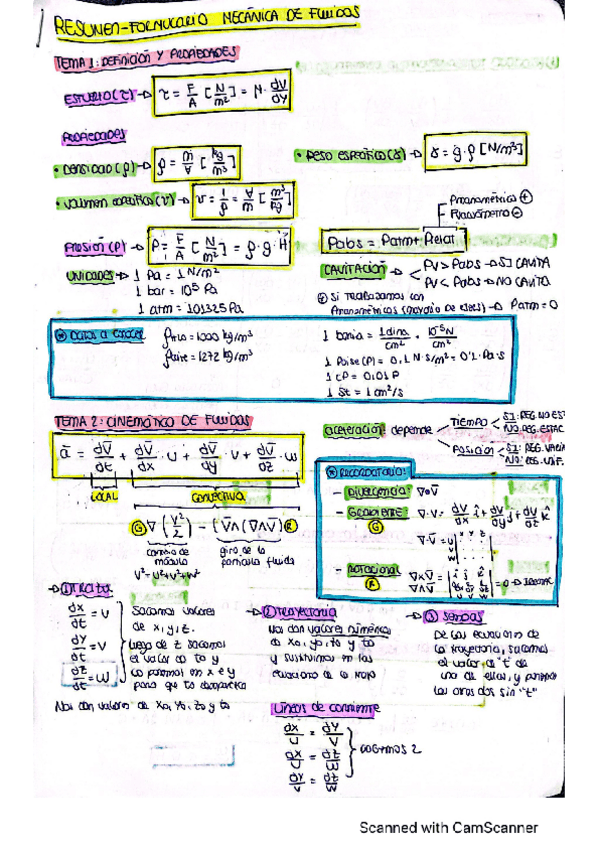 RESUMEN-FORMULARIO MECÁNICA DE FLUIDOS
TEMA 1: DEFINICIÓN Y PROPIEDADES
ESFUERZO (τ) → τ = F/A [N/m²] = M · dV/dY
PROPIEDADES
• DENSIDAD (ρ) → ρ = m/V [kg/m³]
• PESO ESPECÍFICO (γ) → γ = g · ρ [N/m³]
• VOLUMEN ESPECÍFICO (v) → v = 1/ρ = V/m [m³/kg]
PRESIÓN (P) → P = F/A [N/m²] = ρ · g · H
Pmanométrica ⊕
Pvacuómetro ⊖
Pabs = Patm + Prelat
UNIDADES → 1 Pa = 1 N/m²
1 bar = 10⁵ Pa
1 atm = 101325 Pa
CAVITACIÓN → PV > Pabs → SI CAVITA
PV < Pabs → NO CAVITA
Si trabajamos con
manométricas → Patm = 0
DATOS A CONOCER
ρH₂O = 1000 kg/m³
1 baria = 1 dina/cm² = 10⁻⁵N/cm²
1 Poise (P) = 0,1 N·s/m² = 0'1 Pa·s
1 cP = 0,01 P
1 St = 1 cm²/s
TEMA 2: CINEMÁTICA DE FLUIDOS
ā = dV̄/dt + dV̄/dx · u + dV̄/dy · v + dV̄/dz · w
LOCAL CONVECTIVA
G ∇(V²/2) - [V̄∧(∇∧V̄)] R
cambio de módulo
giro de la partícula fluida
V² = U² + V² + W²
aceleración depende
TIEMPO
SI: REG. NO EST
NO: REG. ESTAC
POSICIÓN
SI: REG. VARIA
NO: REG. UNIF.
RECORDATORIO:
— DIVERGENCIA: ∇·V̄
— GRADIENTE G ∇·V = dV/dx î + dV/dy ĵ + dV/dz k̂
— ROTACIONAL R ∇×V̄
∇∧V̄
→ ① TRAZA
dx/dt = U
dy/dt = V
dz/dt = W
Sacamos valores
de x, y, z.
Luego de z sacamos
el valor de to y
lo ponemos en x e y
para que to desaparezca
Nos dan valores de xo, yo, zo y to
→ ② TRAYECTORIA
Nos dan valores numéricos
a xo, yo, zo y to
y sustituimos en las
ecuaciones de la traza
→ ③ SENDAS
De las ecuaciones de
la trayectoria, sacamos
el valor de "t" de
una de ellas, y ponemos
las otras dos sin "t"
LÍNEAS DE CORRIENTE
dx/U = dy/V
dx/U = dz/W
dy/V = dz/W
COGEMOS 2
Scanned with CamScanner